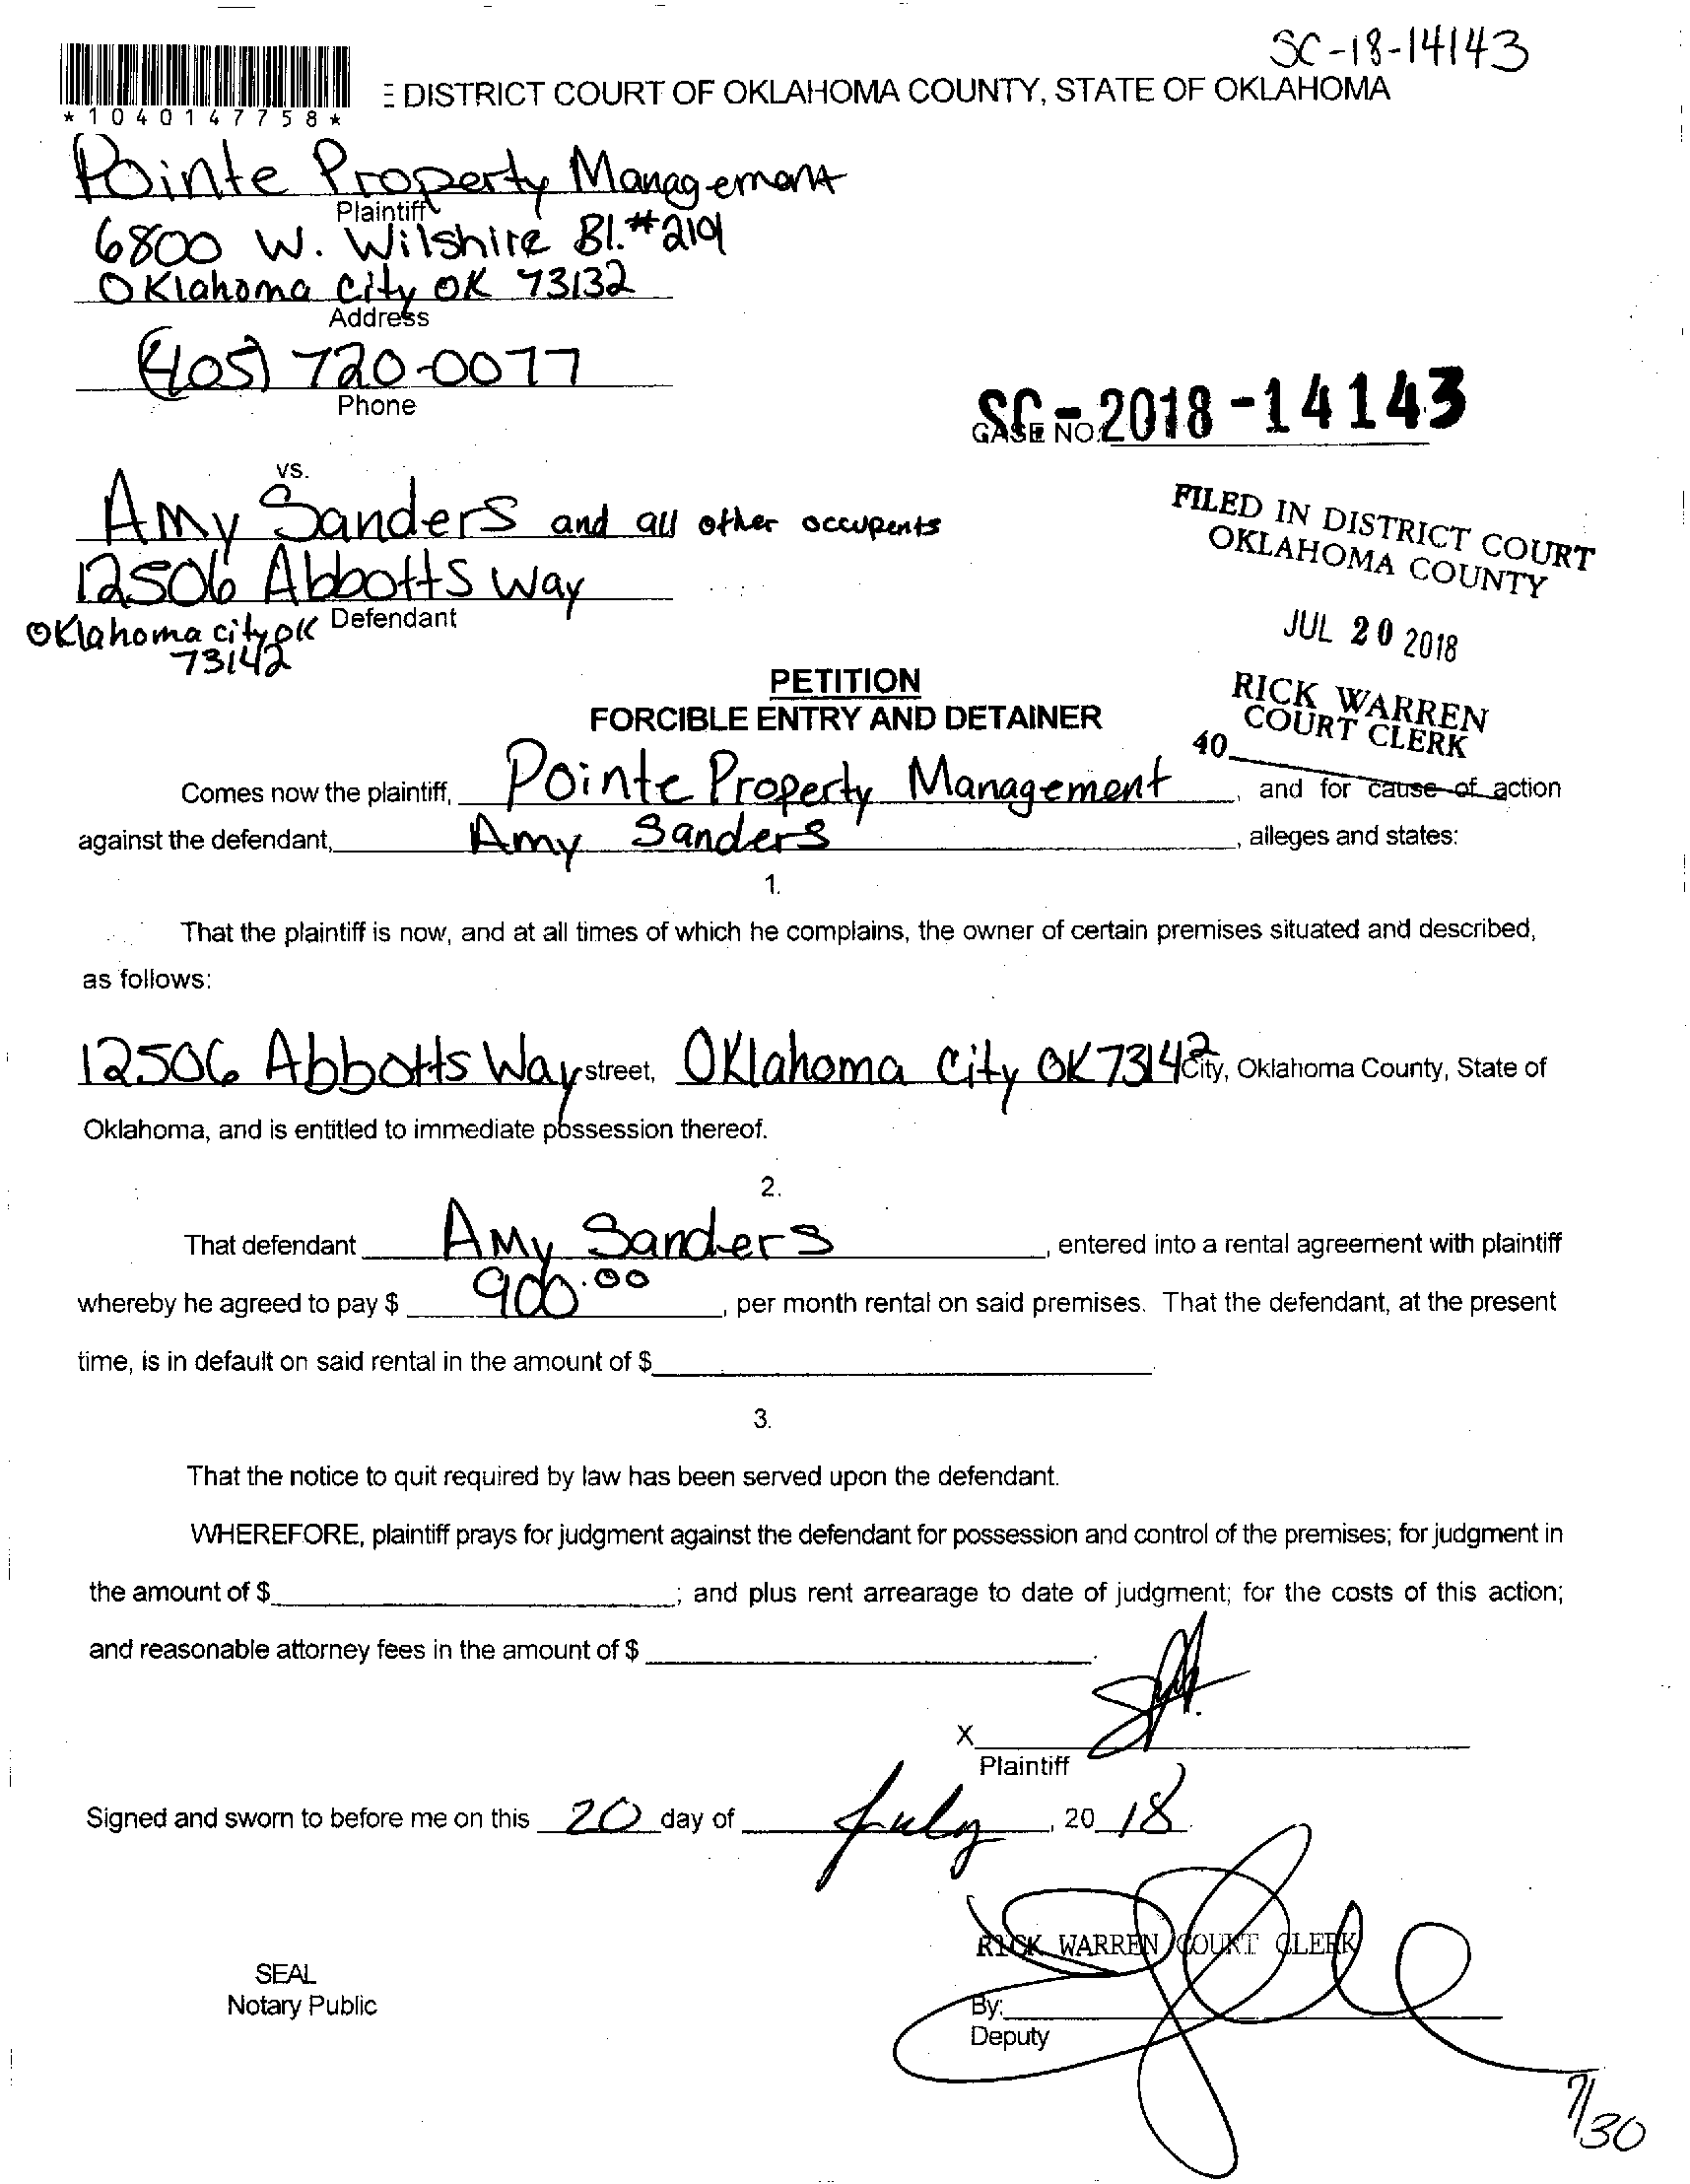 SC-18-14143
E DISTRICT COURT OF OKLAHOMA COUNTY, STATE OF OKLAHOMA
*1040147758*
Pointe Property Management
Plaintiff
6800 W. Wilshire Bl. #2101
Oklahoma City OK 73132
Address
(405) 720-0077
Phone
SC-2018-14143
CASE NO.
vs.
Amy Sanders and all other occupents
12506 Abbotts Way
Defendant
Oklahoma city ok
73142
FILED IN DISTRICT COURT
OKLAHOMA COUNTY
JUL 20 2018
RICK WARREN
COURT CLERK
40
PETITION
FORCIBLE ENTRY AND DETAINER
Comes now the plaintiff, Pointe Property Management, and for cause of action
against the defendant, Amy Sanders, alleges and states:
1.
That the plaintiff is now, and at all times of which he complains, the owner of certain premises situated and described,
as follows:
12506 Abbotts Way street, Oklahoma City OK 73142 City, Oklahoma County, State of
Oklahoma, and is entitled to immediate possession thereof.
2.
That defendant Amy Sanders, entered into a rental agreement with plaintiff
whereby he agreed to pay $ 900.00, per month rental on said premises. That the defendant, at the present
time, is in default on said rental in the amount of $
3.
That the notice to quit required by law has been served upon the defendant.
WHEREFORE, plaintiff prays for judgment against the defendant for possession and control of the premises; for judgment in
the amount of $ ; and plus rent arrearage to date of judgment; for the costs of this action;
and reasonable attorney fees in the amount of $ .
X
Plaintiff
Signed and sworn to before me on this 20 day of July, 20 18.
RICK WARREN COURT CLERK
SEAL
Notary Public
By:
Deputy
7/30